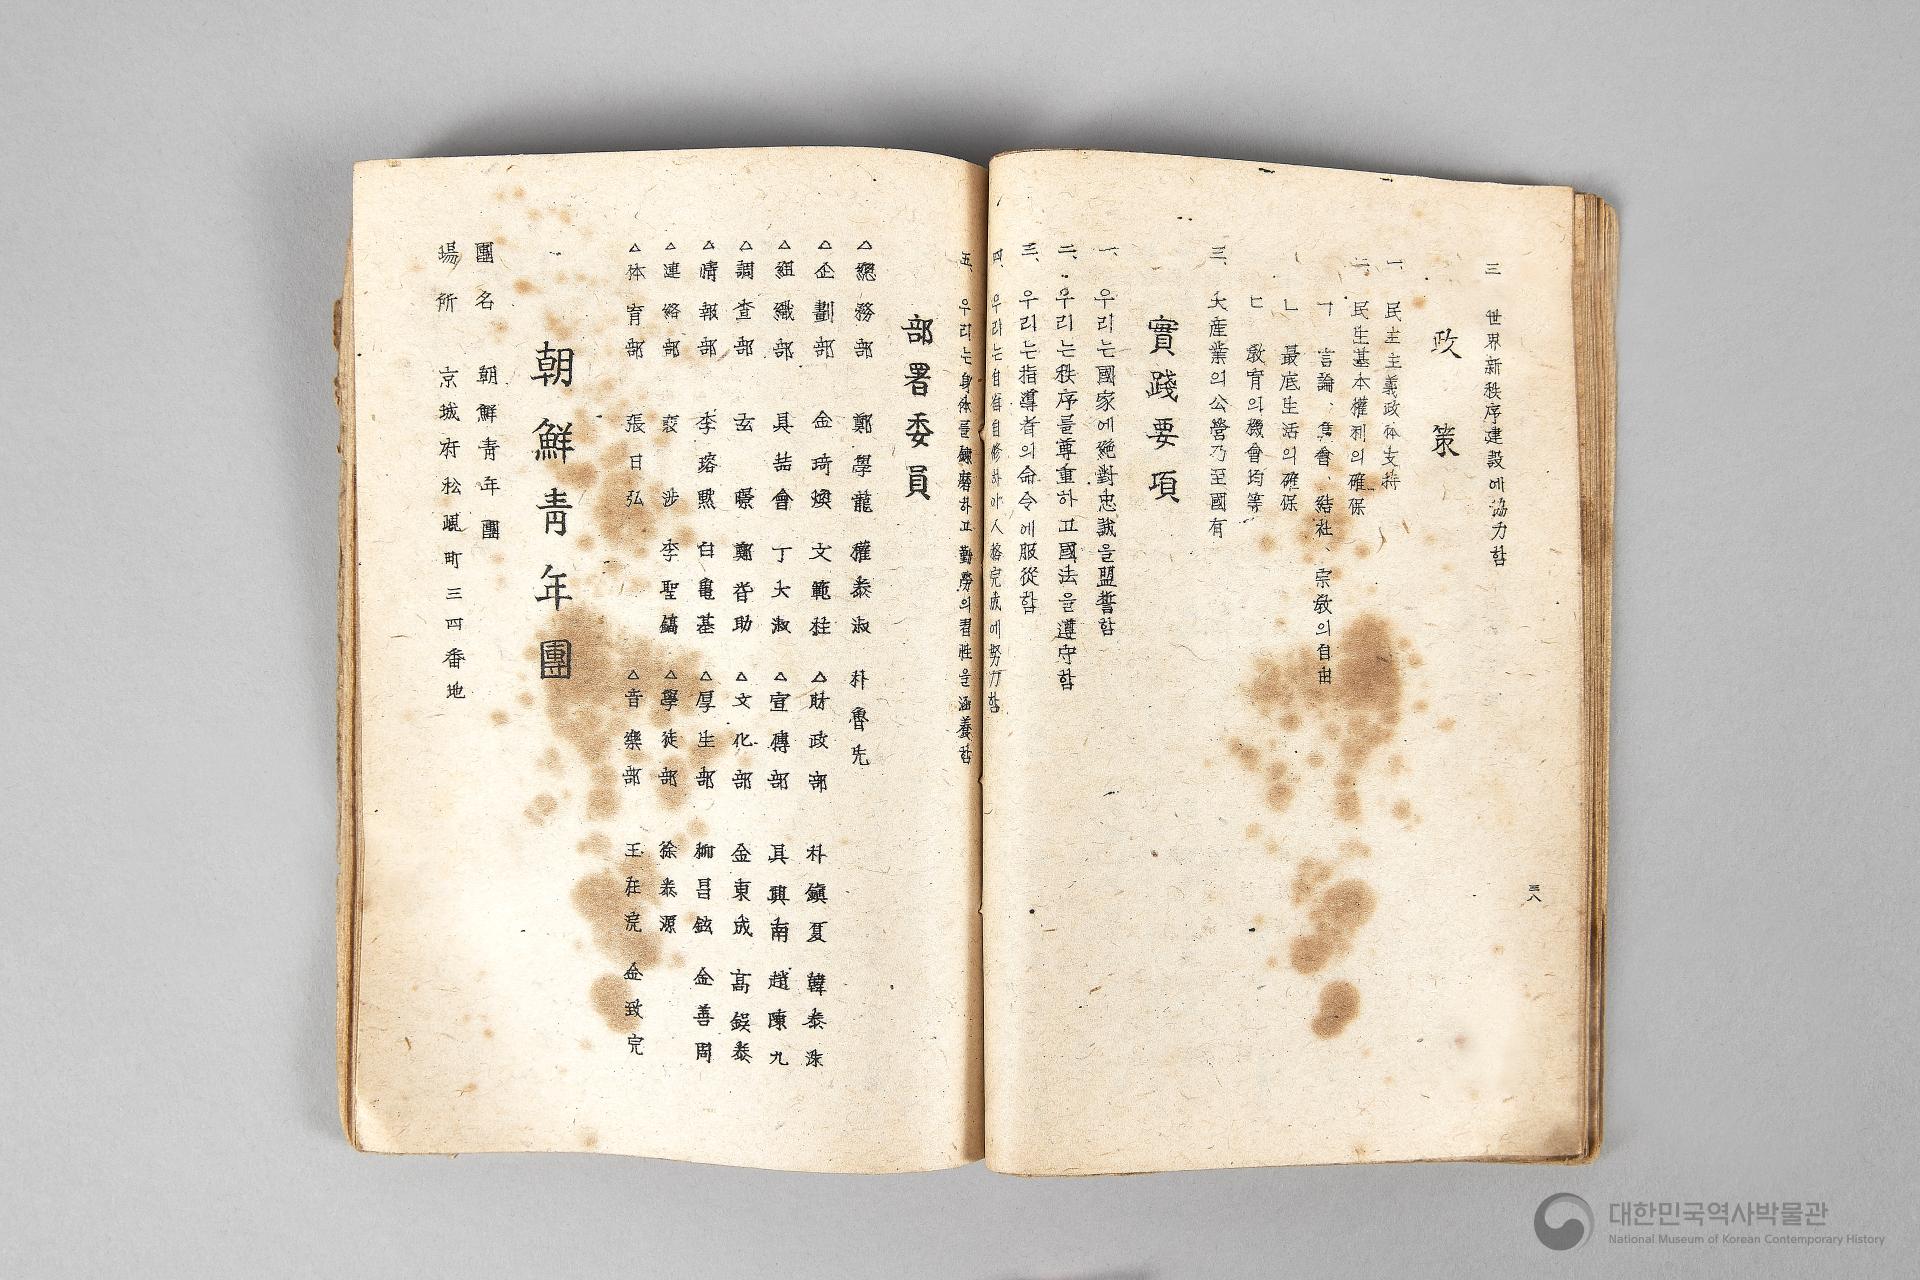 三 世界新秩序建設에協力함
政策
一 民主主義政体支持
二 民生基本權利의確保
ㄱ 言論、集會、結社、宗敎의自由
ㄴ 最底生活의確保
ㄷ 敎育의機會均等
三、大産業의公營乃至國有
實踐要項
一、우리는國家에絶對忠誠을盟誓함
二、우리는秩序를尊重하고國法을遵守함
三、우리는指導者의命令에服從함
四、우리는自省自修하야人格完成에努力함
三八
五、우리는身体를鍊磨하고勤勞의習性을涵養함
部署委員
△總務部 鄭學龍 權泰淑 朴魯先
△企劃部 金琦煥 文範柱 △財政部 朴鎭夏 韓泰洙
△組織部 具喆會 丁大淑 △宣傳部 具興南 趙陳九
△調査部 玄曝 鄭昔助 △文化部 金東成 高錟泰
△情報部 李瑢熙 白龜基 △厚生部 柳昌鉉 金善周
△連絡部 裵涉 李聖鎬 △學徒部 徐泰源
△体育部 張日弘 △音樂部 王在浣 金致完
朝鮮靑年團
團名 朝鮮靑年團
場所 京城府松峴町三四番地
대한민국역사박물관
National Museum of Korean Contemporary History